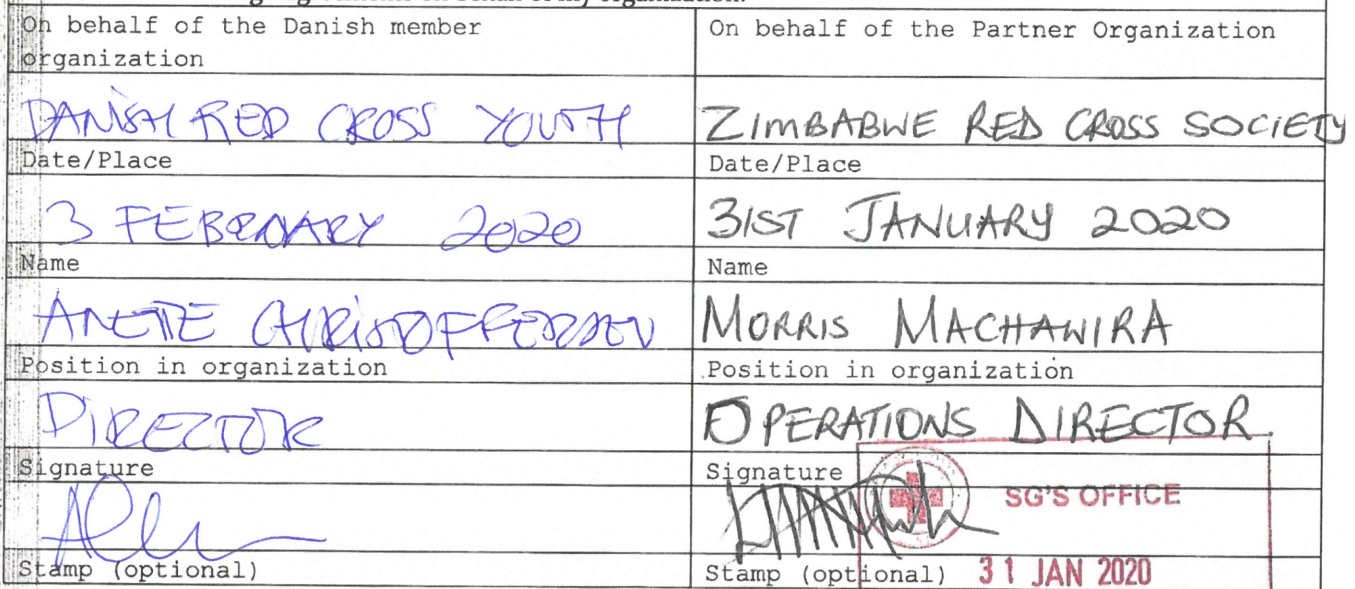 On behalf of the Danish member organization
On behalf of the Partner Organization
DANISH RED CROSS YOUTH
ZIMBABWE RED CROSS SOCIETY
Date/Place
Date/Place
3 FEBRUARY 2020
31ST JANUARY 2020
Name
Name
ANETTE CHRISTOFFERSEN
MORRIS MACHAWIRA
Position in organization
Position in organization
DIRECTOR
OPERATIONS DIRECTOR.
Signature
Signature
SG'S OFFICE
Stamp (optional)
Stamp (optional)
31 JAN 2020